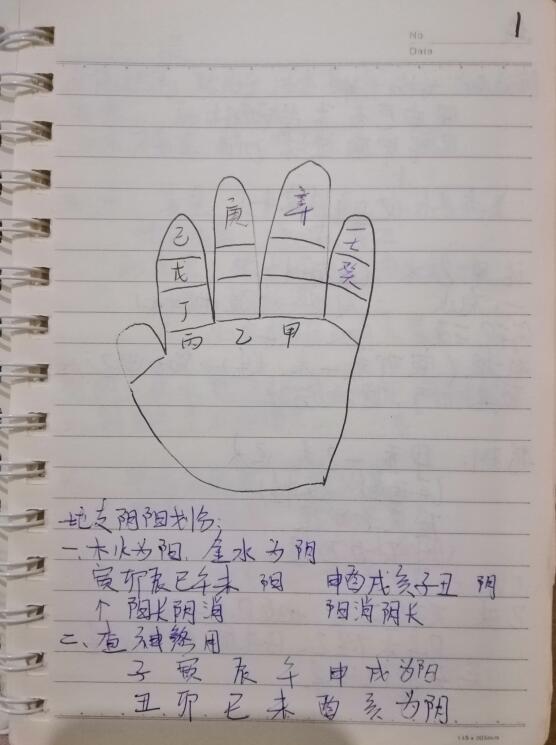 No
Date
1
辛
庚
己
壬
戊
癸
丁
丙 乙 甲
地支阴阳划分:
一、木火为阳、金水为阴
寅卯辰巳午未 阳 申酉戌亥子丑 阴
个 阳长阴消 阳消阴长
二、查神煞用
子 寅 辰 午 申 戌为阳
丑 卯 巳 未 酉 亥 为阴